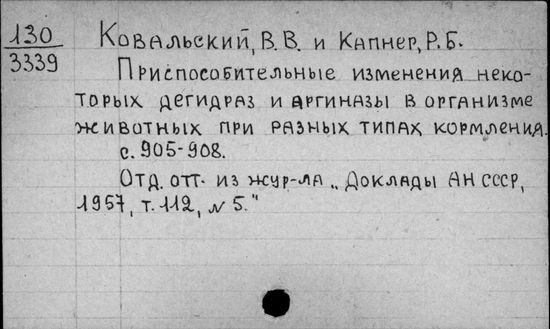 130
3339
Ковальский, В. В. и Капнер, Р. Б.
Приспособительные изменения неко-
торых дегидраз и аргиназы в организме
животных при разных типах кормления.
с. 905-908.
Отд. отт. из жур-ла „Доклады АН СССР,
1957, т. 112, № 5."